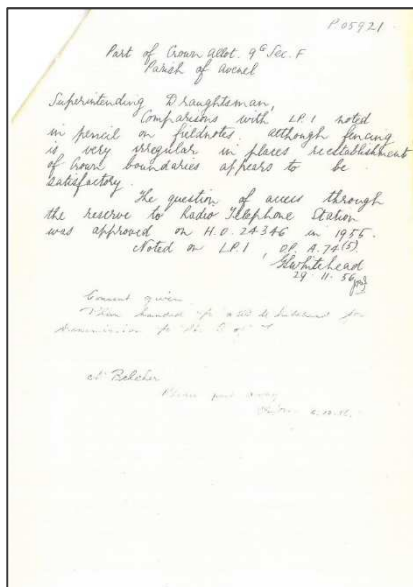 P.05921
Part of Crown Allot. 9G Sec. F
Parish of Avenel
Superintending Draughtsman,
Comparisons with L.P.1 noted
in pencil on fieldnotes. Although fencing
is very irregular in places re-establishment
of Crown boundaries appears to be
satisfactory.
The question of access through
the reserve to Radio Telephone Station
was approved on H.O. 24346 in 1955.
Noted on L.P.1, O.P. A.74(5).
GWhitehead
29.11.56
Consent given
Plan handed
transmission
Mr Belcher
Please put away